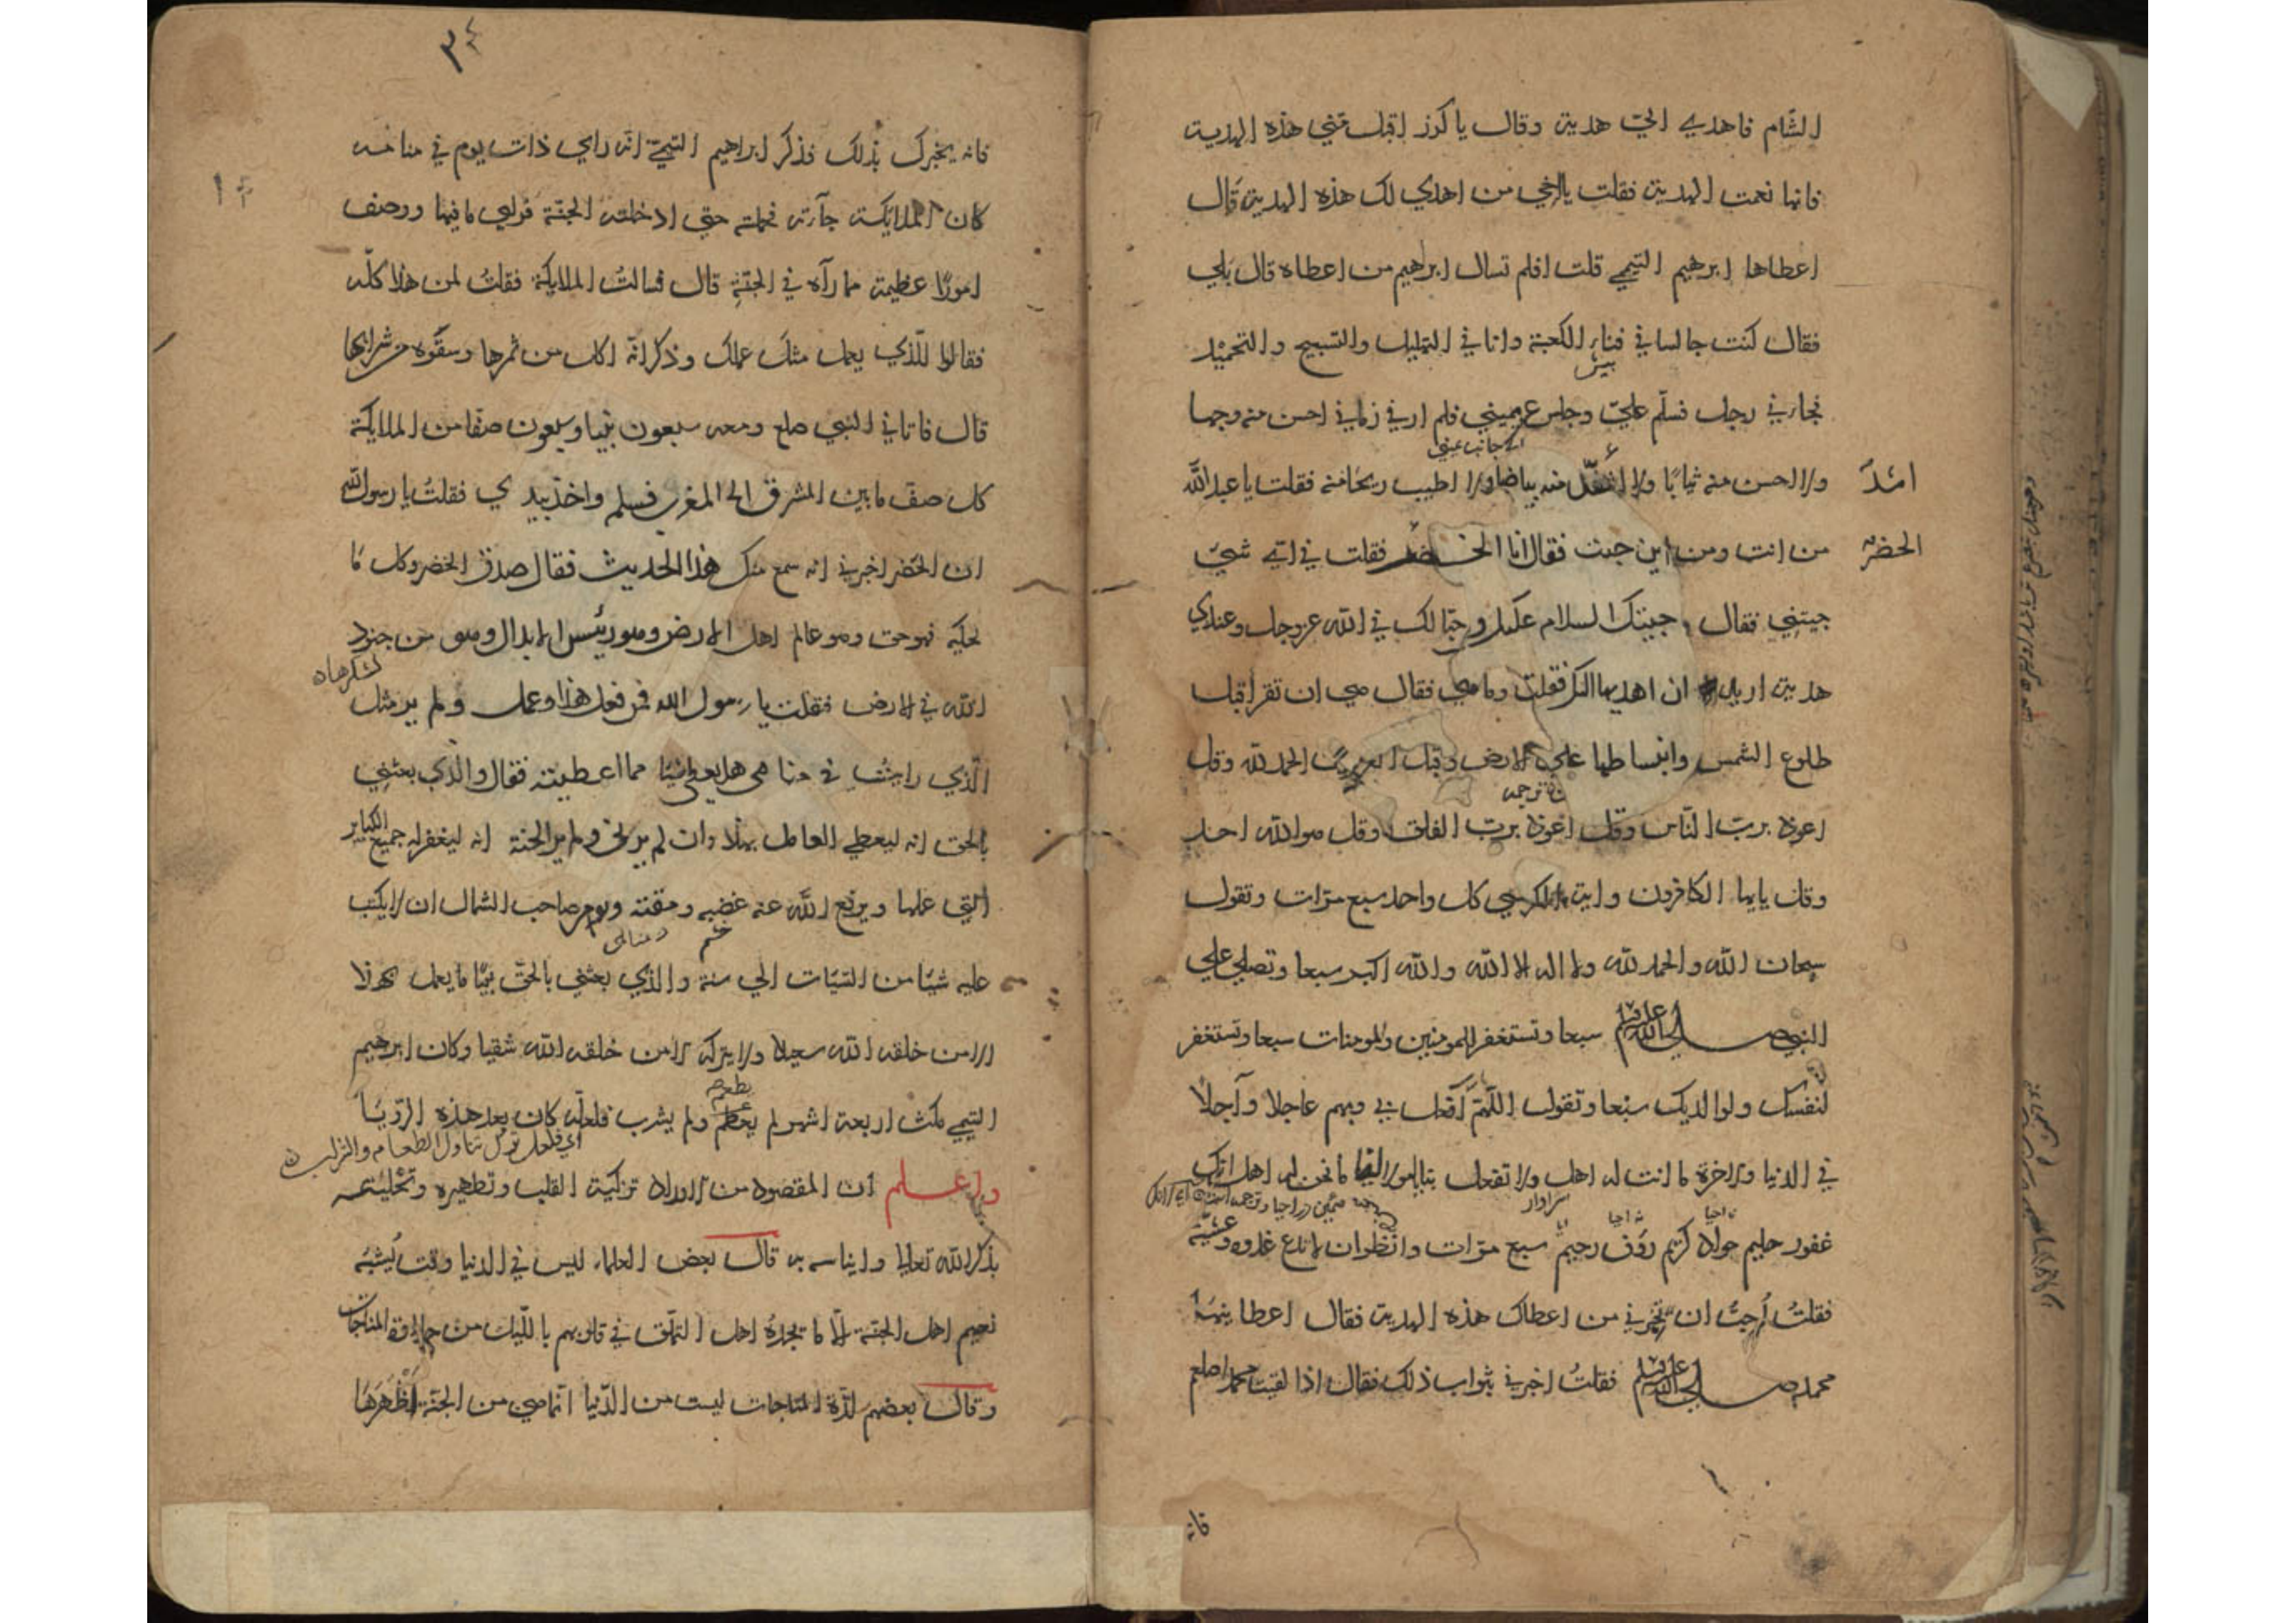 الشام فاهدي الي هدية وقال يا كرز اقبل مني هذه الهدية
فانها نعمت الهدية فقلت يا اخي من اهدي لك هذه الهدية قال
اعطاها ابرهيم التيمي قلت افلم تسال ابراهيم من اعطاه قال بلي
فقال كنت جالسا في فناء الكعبة وانا في التهليل والتسبيح والتحميد
فجاءني رجل فسلّم عليّ وجلس عن يميني فلم ار في زماني احسن منه وجها
ولا احسن منه ثيابًا ولا اشدّ منه بياضا ولا اطيب ريحا منه فقلت يا عبدالله
من انت ومن اين جيت فقال انا الخضر فقلت في اي شيء
جيتني فقال جيتك السلام عليك وحبّا لك في الله عزوجل وعندي
هدية اريد ان اهديها اليك فقلت وما هي فقال هي ان تقرا قبل
طلوع الشمس وانبساطها علي الارض وقبل الغروب الحمد لله وقل
اعوذ بربّ النّاس وقل اعوذ بربّ الفلق وقل هو الله احد
وقل يايها الكافرون واية الكرسي كل واحد سبع مرّات وتقول
سبحان الله والحمد لله ولا اله الا الله والله اكبر سبعا وتصلي علي
النبي صلي الله عليه وسلم سبعا وتستغفر للمومنين والمومنات سبعا وتستغفر
لنفسك ولوالديك سبعا وتقول اللّهمّ افعل بي وبهم عاجلا وآجلا
في الدنيا والاخرة ما انت له اهل ولا تفعل بنا يا مولانا ما نحن له اهل انك
سزاوار
غفور حليم جواد كريم رؤف رحيم سبع مرّات وانظر ان لا تدع غدوه وعشيّة
فقلتُ اُحِبّ ان تخبرني من اعطاك هذه الهدية فقال اعطانيها
محمد صلي الله عليه وسلم فقلتُ اخبرني بثواب ذلك فقال اذا لقيت محمدا صلعم
فانه
فانه يخبرك بذلك فذكر ابراهيم التيميّ انه راي ذات يوم في منامه
كان الملايكة جآءته فحملته حتي ادخلته الجنّة فراي ما فيها ووصف
امورًا عظيمة مما رآه في الجنّة قال فسالتُ الملايكة فقلتُ لمن هذا كلّه
فقالوا للّذي يعمل مثل عملك وذكر انّه اكل من ثمرها وسقوه من شرابها
قال فاتاني النبي صلعم ومعه سبعون نبيا وسبعون صفّا من الملايكة
كل صفّ ما بين المشرق الي المغرب فسلم واخذ بيدي فقلتُ يا رسول الله
ان الخضر اخبرني انه سمع منك هذا الحديث فقال صدق الخضر وكل ما
يحكيه فهو حق وهو عالم اهل الارض وهو رئيس الابدال وهو من جنود
الله في الارض فقلت يا رسول الله فمن فعل هذا وعمل ولم ير مثل
الّذي رايتُ في منامي هل يعطي شيئا مما اعطيته فقال والّذي بعثني
بالحق انه ليعطي العامل بهذا وان لم يرني ولم ير الجنة انه ليغفر له جميع الكباير
التي عملها ويرفع اللّه عنه غضبه ومقته ويومر صاحب الشمال ان لا يكتب
خشم
عليه شيئا من السّيّات الي سنة والّذي بعثني بالحقّ نبيّا ما يعمل بهذا
الا من خلقه الله سعيدا ولا يتركه الا من خلقه الله شقيا وكان ابرهيم
التيمي مكث اربعة اشهر لم يطعم ولم يشرب فلعلّه كان بعد هذه الرّؤيا
اي فلعل ترك تناول الطعام والشراب
واعلم ان المقصود من الاوراد تزكية القلب وتطهيره وتحليته
بذكر الله تعالي وايناسه به قال بعض العلماء ليس في الدنيا وقت يُشبه
نعيم اهل الجنة الّا ما يجده اهل التملّق في قلوبهم باللّيل من حلاوة المناجات
وقال بعضهم لذّة المناجات ليست من الدّنيا انّما هي من الجنّة اَظْهَرَهَا